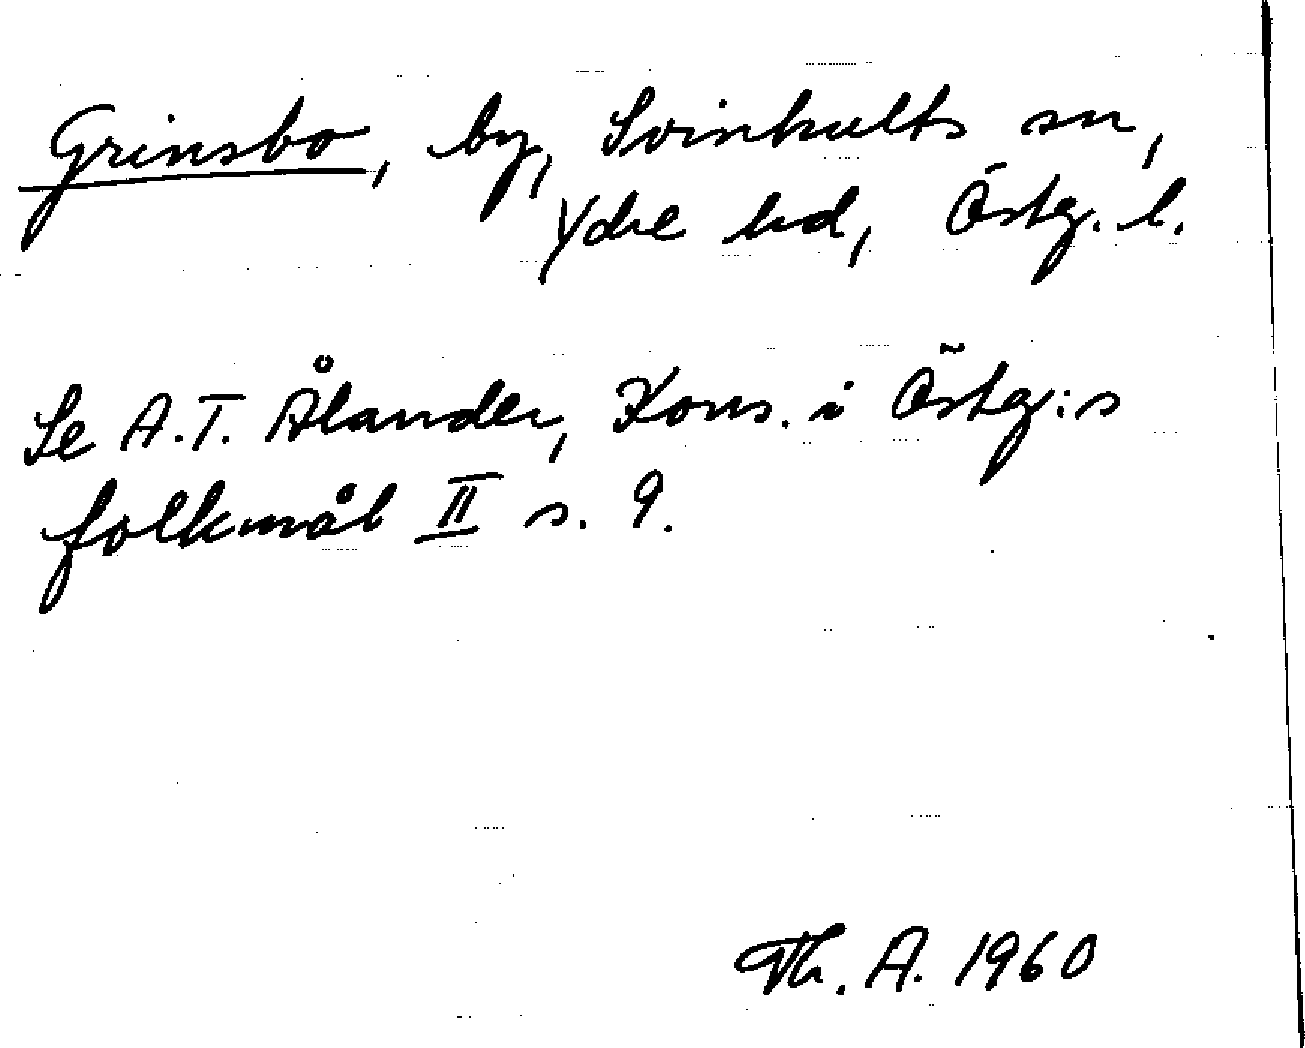 Grinsbo, by, Svinhults sn,
Ydre hd, Östg. l.
Se A.T. Ålander, Kons. i Östg:s
folkmål II s. 9.
Th. A. 1960